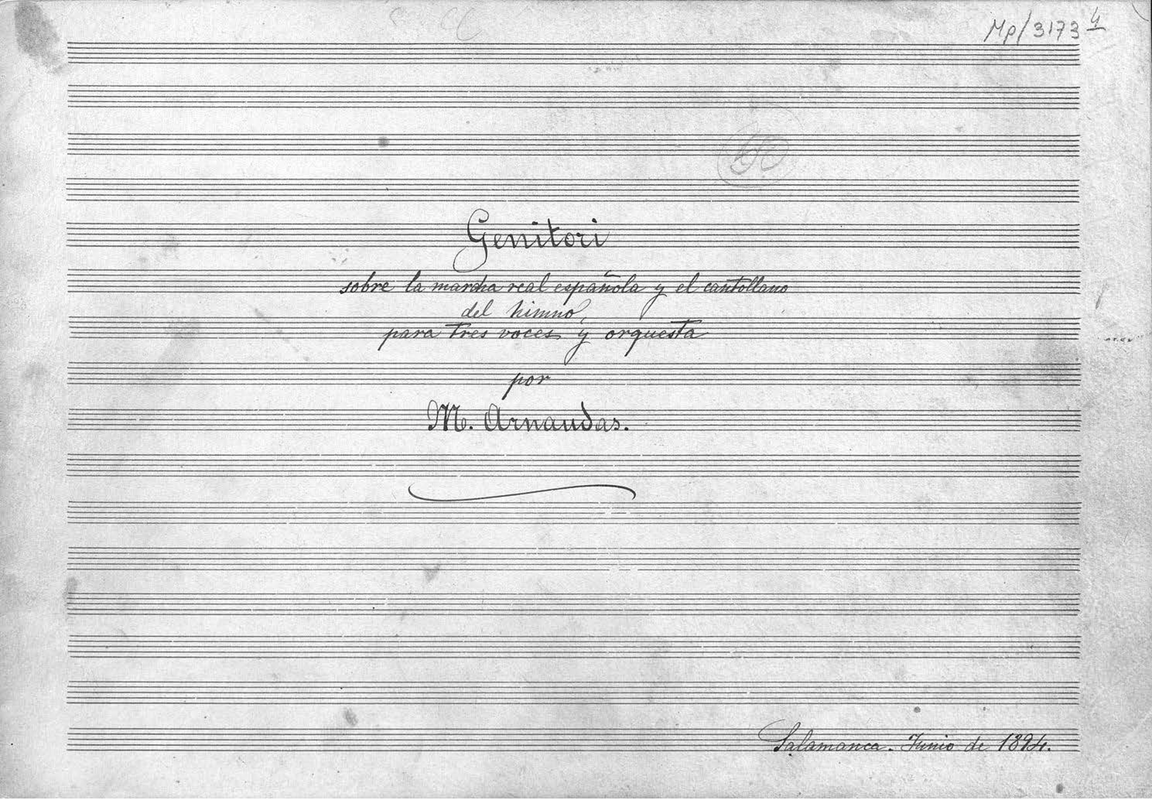 Mp/3173 4
Genitori
sobre la marcha real española y el cantollano
del himno,
para tres voces y orquesta
por
M. Arnaudas.
Salamanca. Junio de 1894.